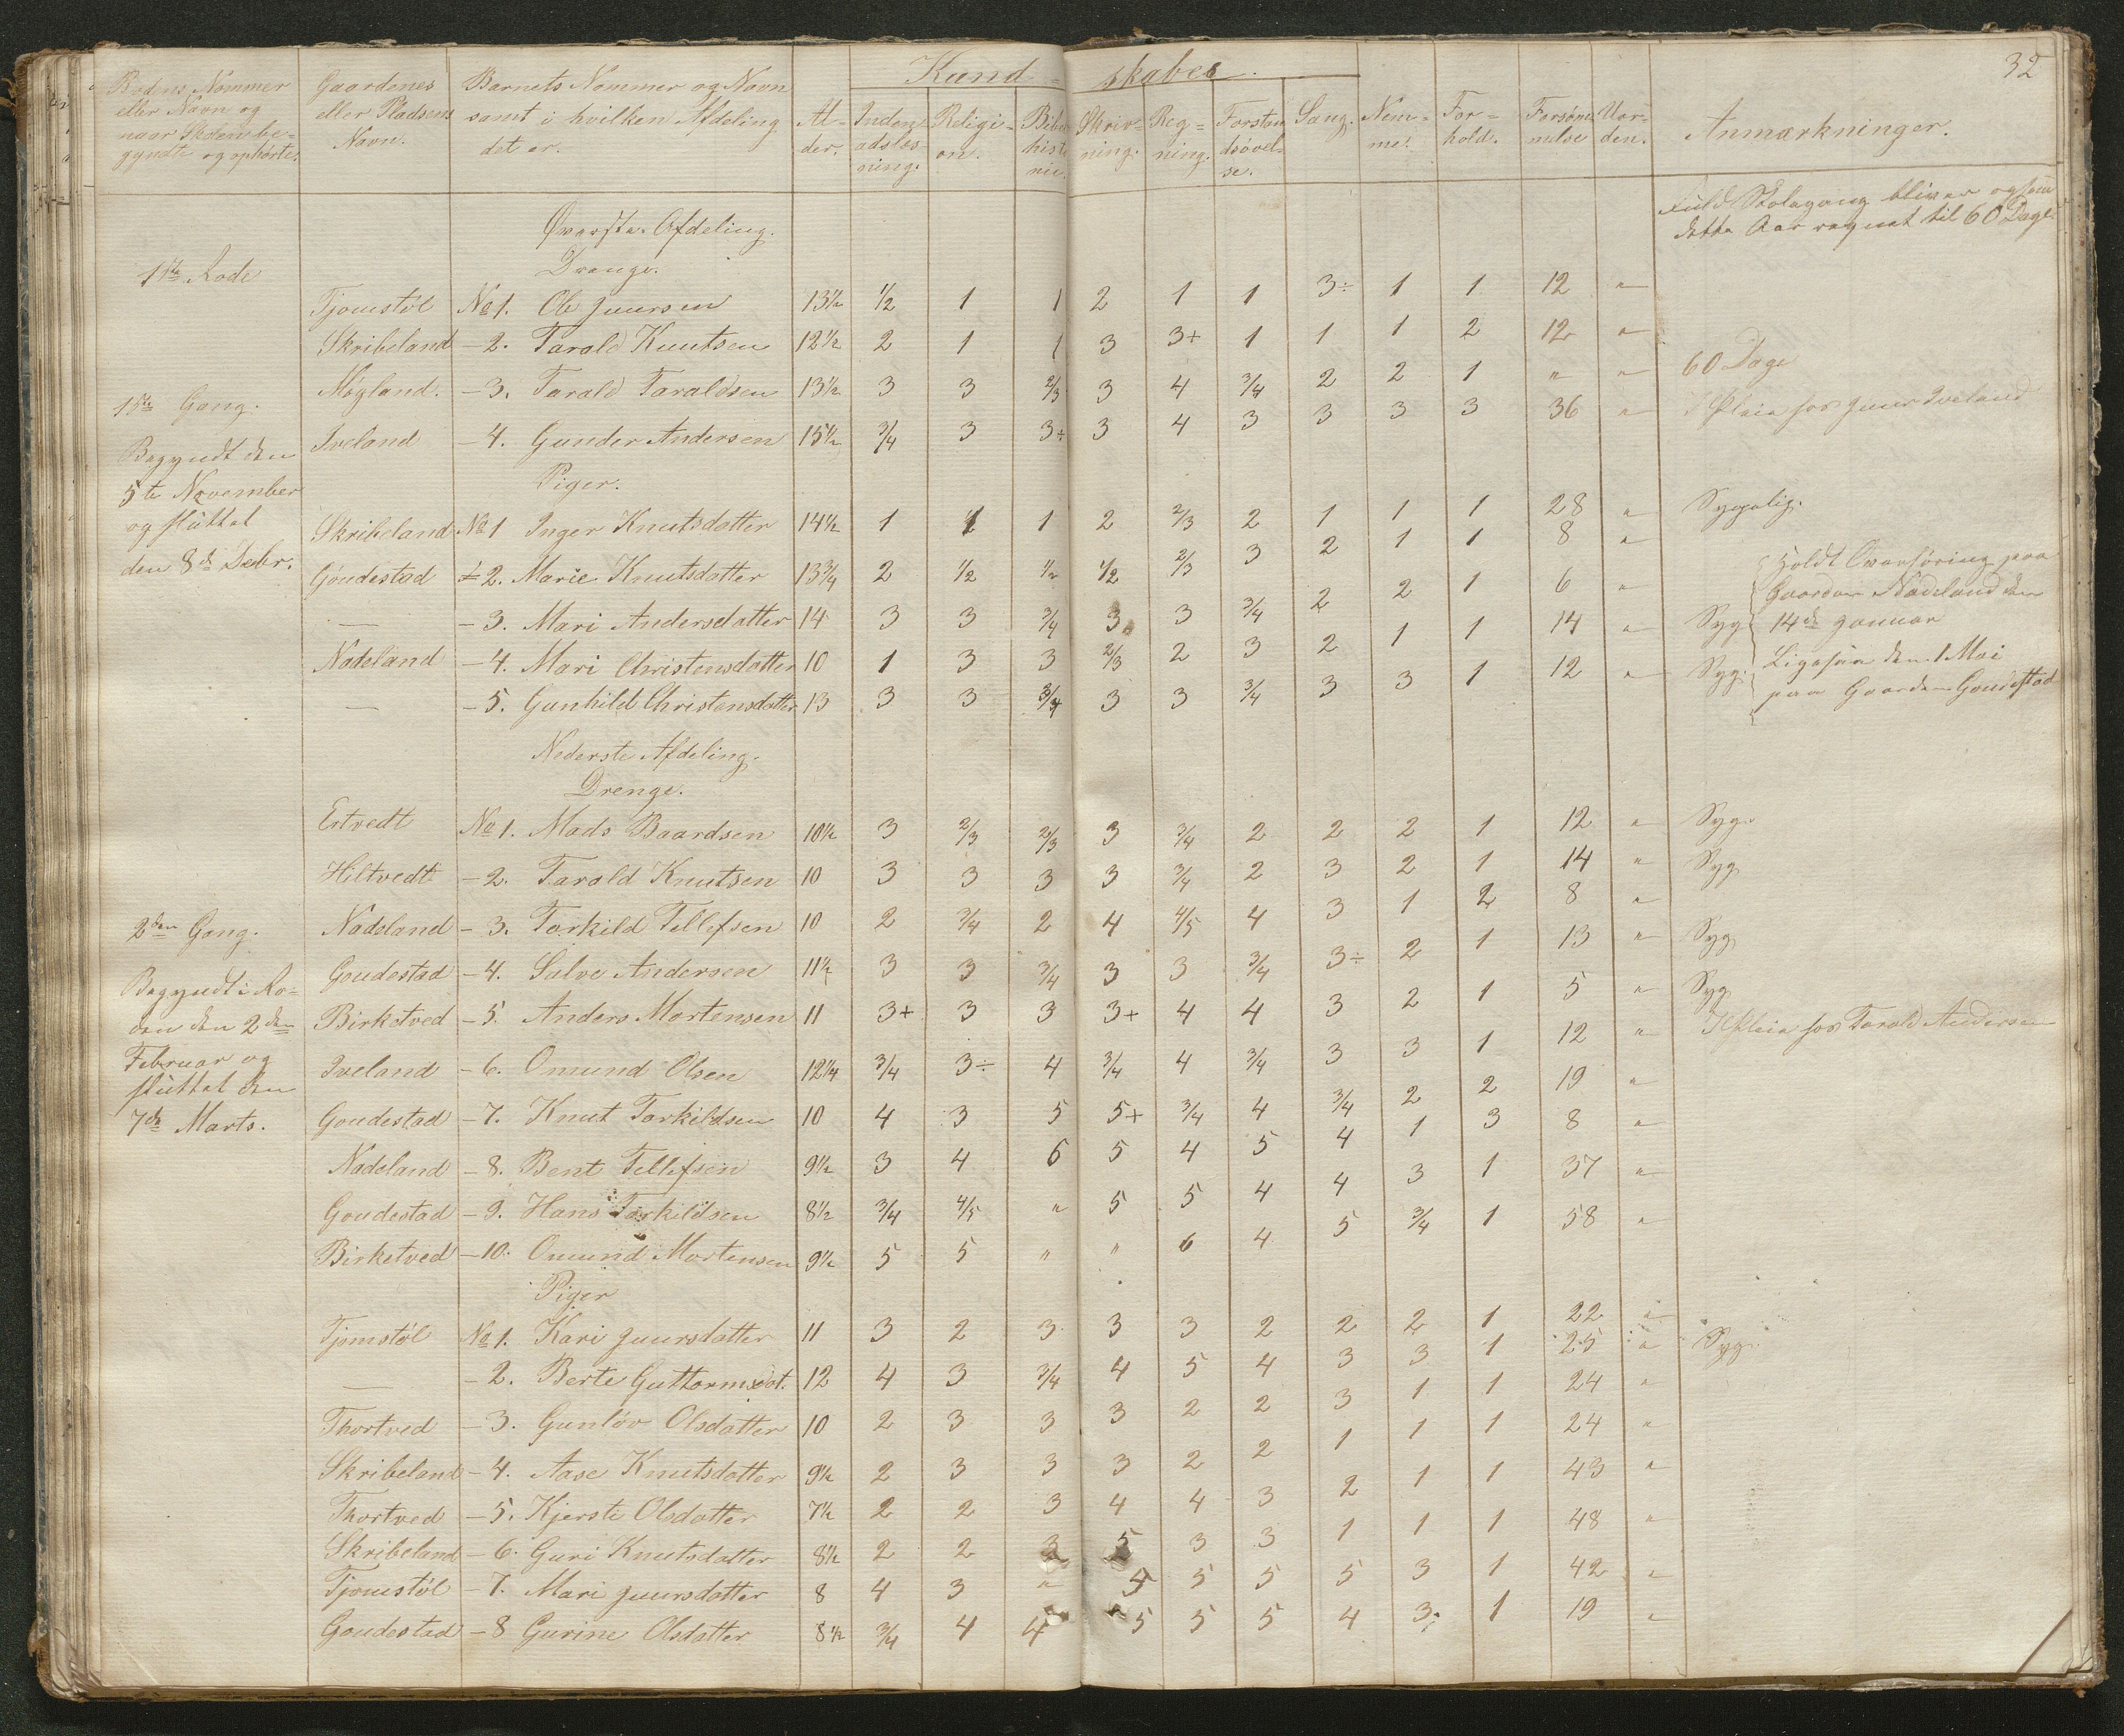 32
Kund- skaber.
Rodens Nommer eller Navn og naar Skolen be- gyndte og ophørte.
Gaardenes eller Pladsens Navn.
Barnets Nommer og Navn samt i hvilken Afdeling det er.
Al- der.
Inden- adslæs- ning.
Religi- on.
Bibel histo rie.
Skriv- ning.
Reg- ning.
Forstan dsøvel- se.
Sang.
Nem- me.
For- hold.
Forsøm- melse
Uor- den.
Anmærkninger.
Fuld Skolegang bliver ogsaa
dette Aar regnet til 60 Dage.
Øverste Afdeling.
1ste Rode
Drenge.
Tjomstøl No 1. Ole Juursen 13½ ½ 1 1 2 1 1 3÷ 1 1 12 "
Skribeland - 2. Tarald Knutsen 12½ 2 1 1 3 3+ 1 1 1 2 12 "
Møgland. - 3. Tarald Taraldsen 13½ 3 3 2/3 3 4 3/4 2 2 1 " " 60 Dage
1ste Gang.
Iveland - 4. Gunder Andersen 15½ 3/4 3 3+ 3 4 3 3 3 3 36 " I Pleie hos Juur Iveland
Begyndt den
5te November
og sluttet
den 8de Decbr.
Piger.
Skribeland No 1 Inger Knutsdatter 14½ 1 1 1 2 2/3 2 1 1 1 28 " Sygelig.
Goudestad - 2. Marie Knutsdatter 13¾ 2 ½ ½ ½ 2/3 3 2 1 1 8 "
— - 3. Mari Andersdatter 14 3 3 3/4 3 3 3/4 2 2 1 6 "
Nadeland - 4. Mari Christensdatter 10 1 3 3 2/3 2 3 2 1 1 14 " Syg
— - 5. Gunhild Christensdatter 13 3 3 3/4 3 3 3/4 3 3 1 12 " Syg.
Holdt Overhøring paa
Gaarden Nadeland den
14de Januar
Ligesaa den 1 Mai
paa Gaarden Goudestad
Nederste Afdeling.
Drenge.
Ertvedt No 1. Mads Baardsen 10½ 3 2/3 2/3 3 3/4 2 2 2 1 12 " Syg.
Hiltvedt - 2. Tarald Knutsen 10 3 3 3 3 3/4 2 3 2 1 14 " Syg
2den Gang.
Nadeland - 3. Torkild Tellefsen 10 2 3/4 2 4 4/5 4 3 1 2 8 "
Goudestad - 4. Salve Andersen 11½ 3 3 3/4 3 3 3/4 3÷ 2 1 13 " Syg
Begyndt i Ro-
den den 2den
Februar og
sluttet den
7de Marts.
Birketved - 5. Anders Mortensen 11 3+ 3 3 3+ 4 4 3 2 1 5 " Syg
Iveland - 6. Omund Olsen 12¼ 3/4 3÷ 4 3/4 4 3/4 3 3 1 12 " I Pleie hos Tarald Andersen
Goudestad - 7. Knut Torkildsen 10 4 3 5 5+ 3/4 4 3/4 2 2 19 "
Nadeland - 8. Bent Tellefsen 9½ 3 4 6 5 4 5 4 1 3 8 "
Goudestad - 9. Hans Torkildsen 8½ 3/4 4/5 " 5 5 4 4 3 1 37 "
Birketved - 10. Omund Mortensen 9½ 5 5 " " 6 4 5 3/4 1 58 "
Piger
Tjomstøl No 1. Kari Juursdatter 11 3 2 3 3 3 2 2 2 1 22 "
— - 2. Berte Guttormsdat. 12 4 3 3/4 4 5 4 3 3 1 25 " Syg.
Thortved - 3. Gunløv Olsdatter 10 2 3 3 3 2 2 3 1 1 24 "
Skribeland - 4. Aase Knutsdatter 9½ 2 3 3 3 2 2 1 1 1 24 "
Thortved - 5. Kjersti Olsdatter 7½ 2 2 3 4 4 3 2 1 1 43 "
Skribeland - 6. Guri Knutsdatter 8½ 2 2 3 5 3 3 1 1 1 48 "
Tjomstøl - 7. Mari Juursdatter 8 4 3 " 5 5 5 5 3 1 42 "
Goudestad - 8 Gurine Olsdatter 8½ 3/4 4 4 5 5 5 4 3 1 19 "